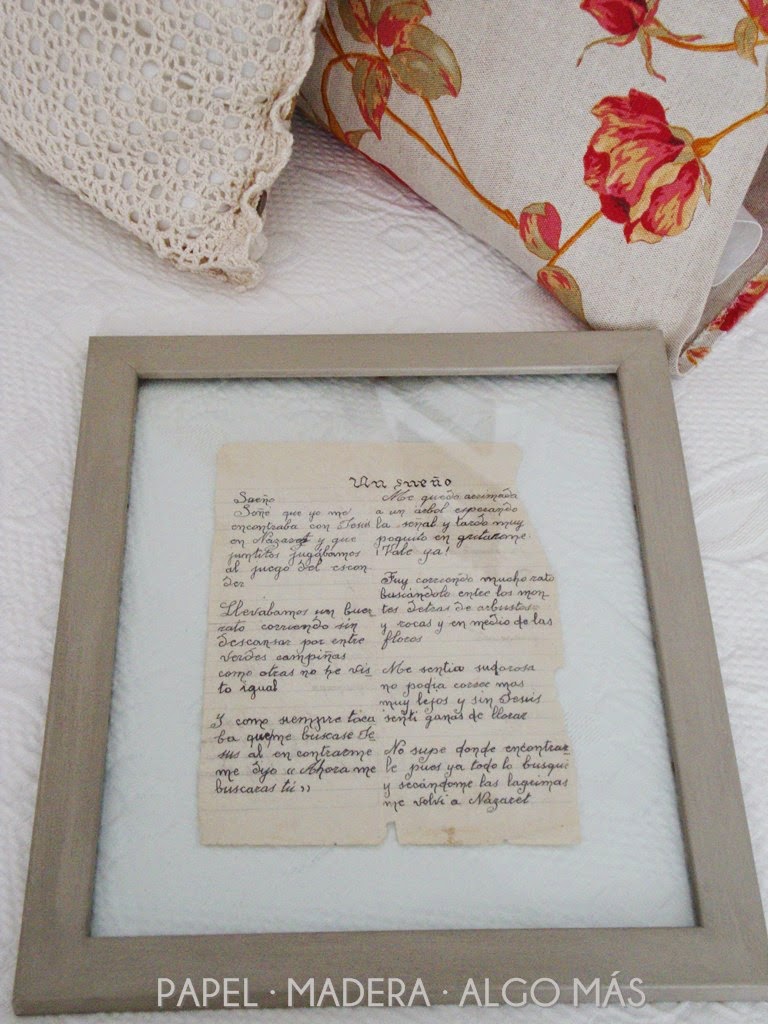 Un sueño
Sueño
Soñe que yo me
encontraba con Jesus
en Nazaret y que
juntitos jugabamos
al juego del escon
der
Llevabamos un buen
rato corriendo sin
descansar por entre
verdes campiñas
como otras no he vis-
to igual
Y como siempre toca
ba que me buscase Je
sus al encontrarme
me dijo "Ahora me
buscaras tú"
Me quede arrimada
a un árbol esperando
la señal y tardo muy
poquito en gritarme
¡Vale ya!
Fuy corriendo mucho rato
buscándolo entre los mon
tes detras de arbustos
y rocas y en medio de las
flores
Me sentia sudorosa
no podia correr mas
muy lejos y sin Jesús
senti ganas de llorar
No supe donde encontrar
le pues ya todo lo busque
y secándome las lagrimas
me volvi a Nazaret
PAPEL · MADERA · ALGO MÁS